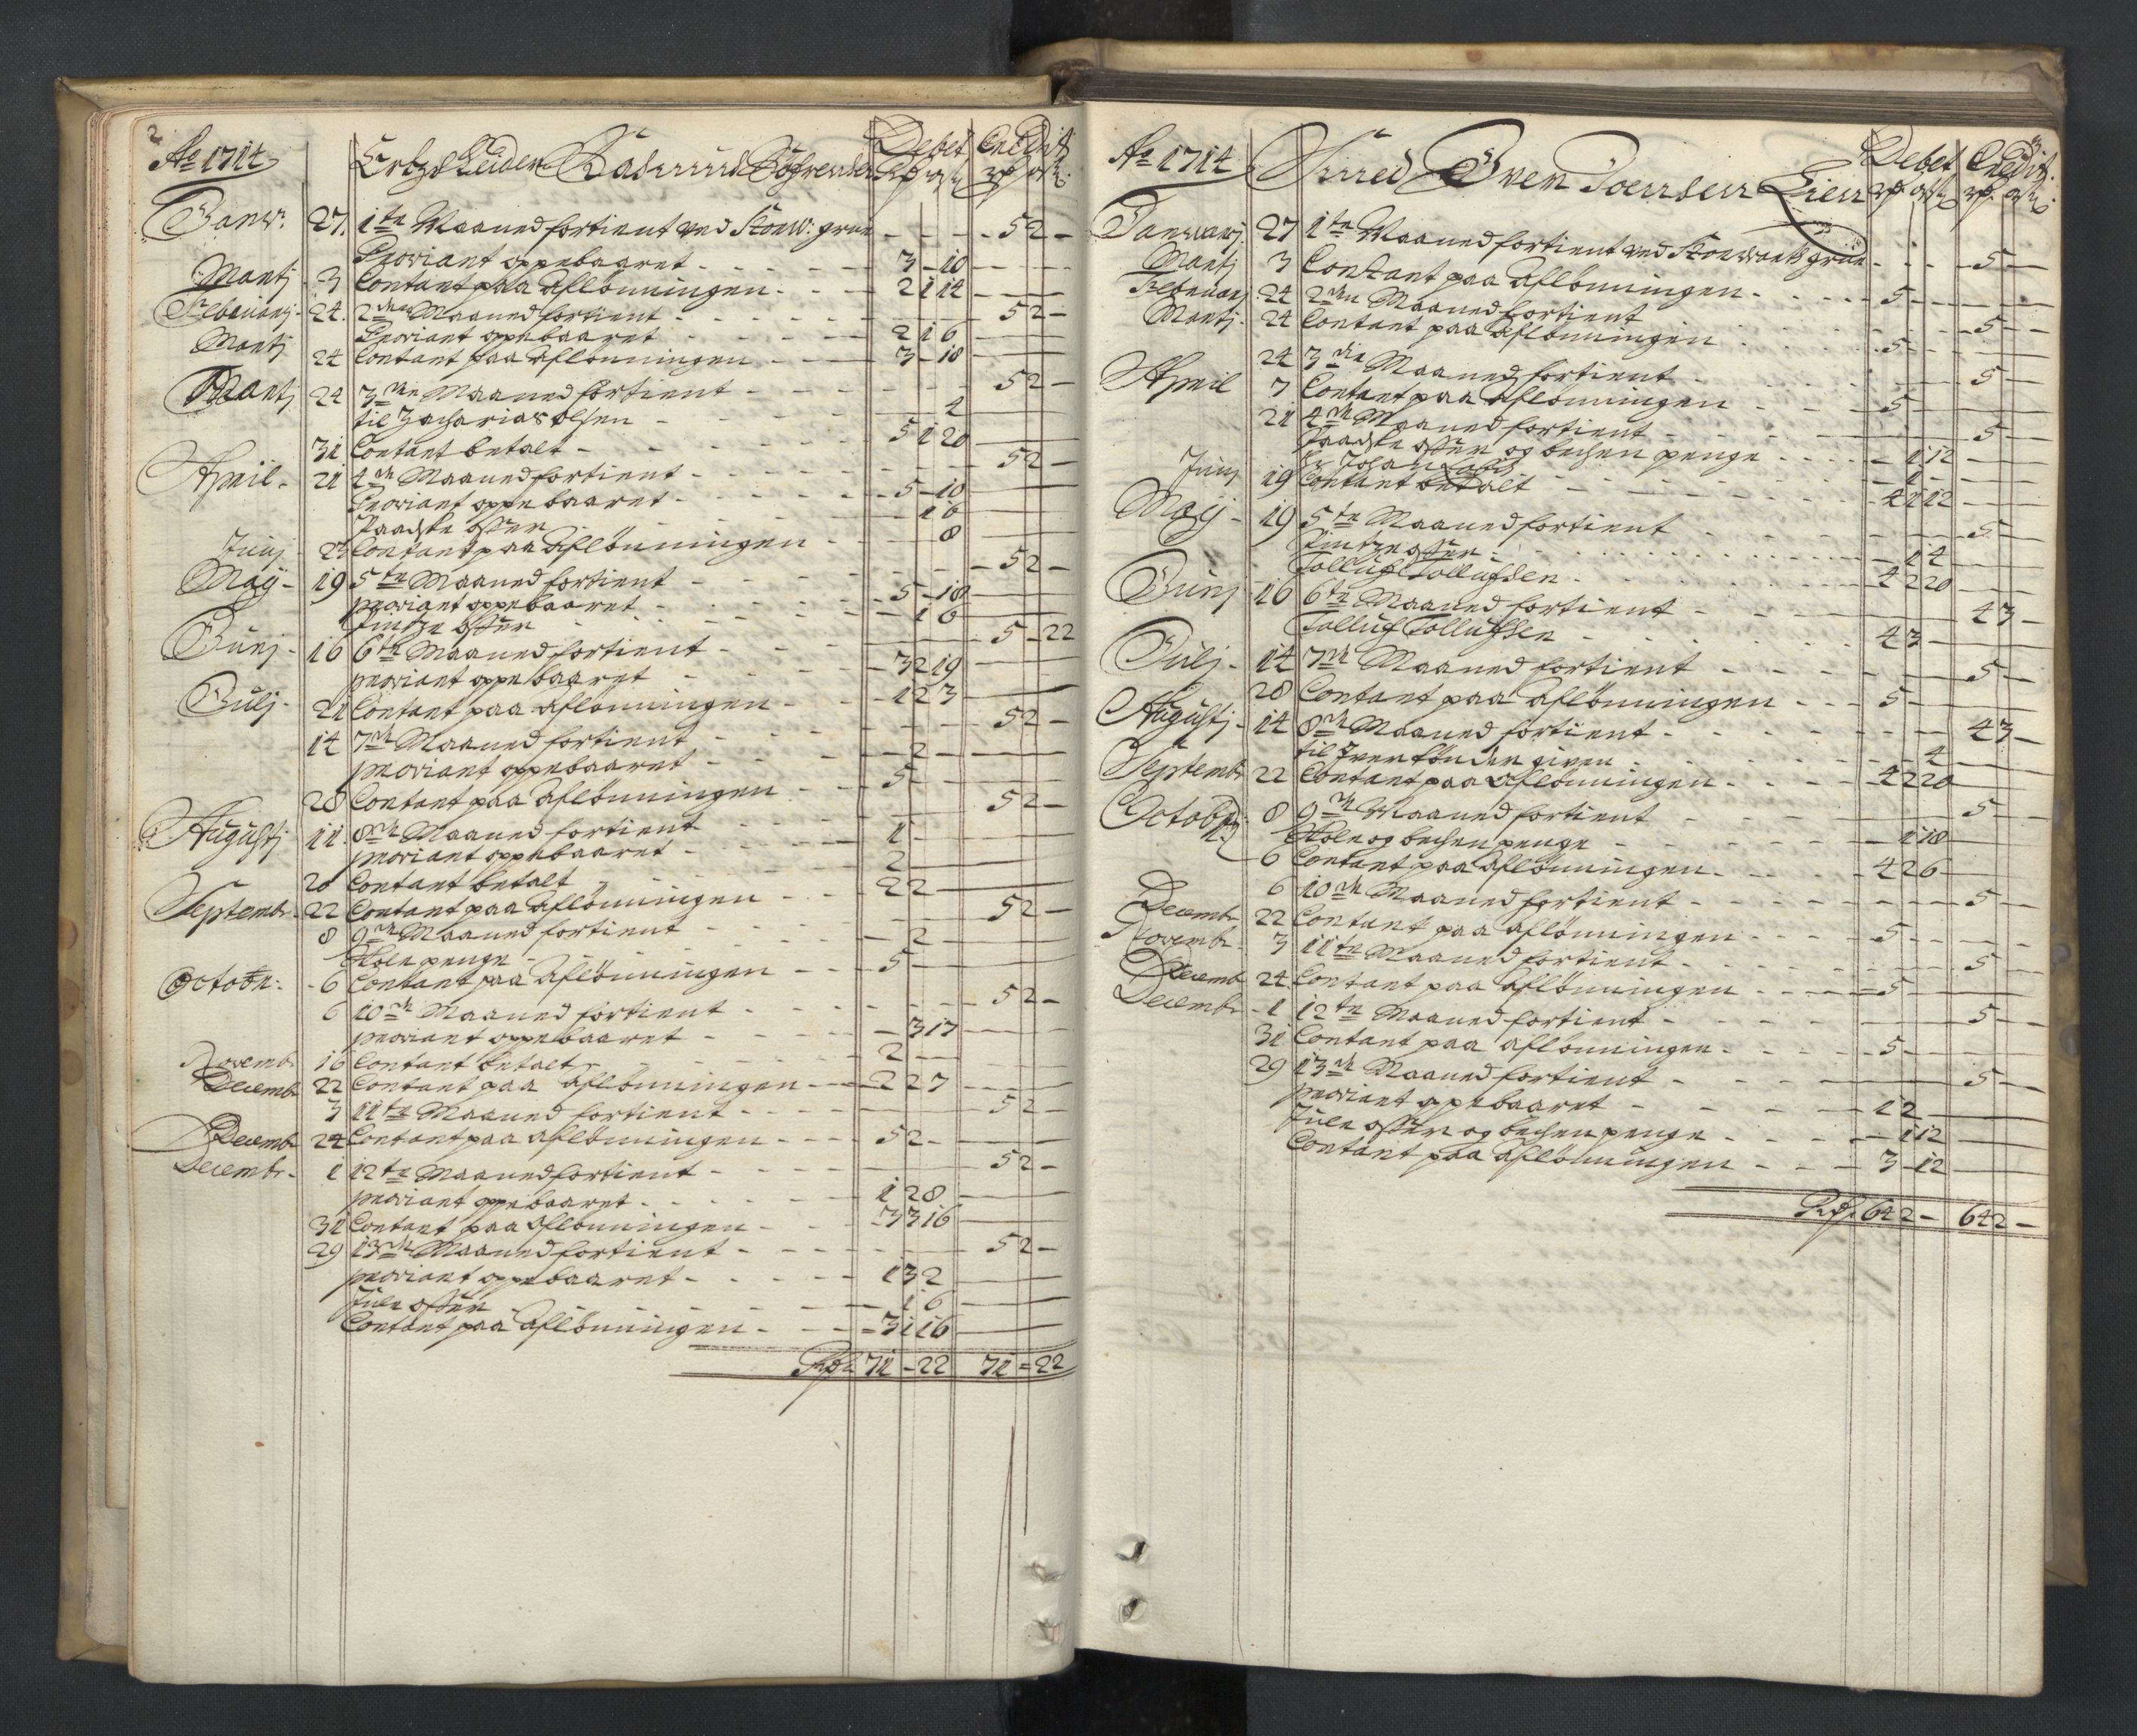 2
Ao 1714 Debet Credit
Janu: 27. 1te Maaned fortient ved Storw: grue - - - 52 -
Proviant oppebaaret - - - 3 - 18
Martj 3 Contant paa Aflønningen - - - 2 1 14
Februarij 24. 2den Maaned fortient - - - 52 -
Proviant oppebaaret - - - 2 1 6
Martj 24 Contant paa Aflønningen - - - 3 - 18
Martj 24 3die Maaned fortient - - - 52 -
til Zacharias Olsen - - - 4
31 Contant betalt - - - 5 1 20
April 21 4de Maaned fortient - - - 52 -
Proviant oppebaaret - - - 5 - 10
Paaske offer - - - 1 6
Junj 23 Contant paa Aflønningen - - - 8
Maij 19 5te Maaned fortient - - - 52 -
proviant oppebaaret - - - 5 - 18
Pintze offer - - - 1 6
Junj 16 6te Maaned fortient - - - 5 - 22
proviant oppebaaret - - - 3 2 19
Julj 21 Contant paa Aflønningen - - - 1 2 3
14 7de Maaned fortient - - - 52 -
proviant oppebaaret - - - 2 -
28 Contant paa Aflønningen - - - 5 -
Augustj 11. 8de Maaned fortient - - - 52 -
proviant oppebaaret - - - 1 -
20 Contant betalt - - - 2
Septembr 22 Contant paa Aflønningen - - - 22
8 9de Maaned fortient - - - 52 -
Skole penge - - - 2 -
Octobr: 6 Contant paa Aflønningen - - - 5 -
6 10de Maaned fortient - - - 52 -
proviant oppebaaret - - - 3 17
Novemb: 16 Contant betalt - - - 2 -
Decemb 22 Contant paa aflønningen - - - 2 2 7
3 11te Maaned fortient - - - 52 -
Decemb 24 Contant paa aflønningen - - - 52 -
Decembr 1 12te Maaned fortient - - - 52 -
proviant oppebaaret - - - 1 2 8
31 Contant paa Aflønningen - - - 3 3 16
29 13de Maaned fortient - - - 52 -
proviant oppebaaret - - - 1 3 2
Jule offer - - - 1 6
Contant paa Aflønningen - - - 3 1 16
71 - 22 71 - 22
Ao 1714 Sven Lier Debet Credit
Januarij 27 1te Maaned fortient ved Storvarts grue - - - 5 -
Martj 3 Contant paa Aflønningen - - - 5 -
Februarij 24 2den Maaned fortient - - - 5 -
Martj 24 Contant paa Aflønningen - - - 5 -
24 3die Maaned fortient - - - 5 -
April 7 Contant paa Aflønningen - - - 5 -
21 4de Maaned fortient - - - 5 -
Paaske offer og bechen penge - - - 1 12
Junj 19 Contant betalt - - - 4 1 12
Maij 19 5te Maaned fortient - - - 5 -
Pintze offer - - - 1 4
Tolluf Tollufsen - - - 4 2 20
Junj 16 6te Maaned fortient - - - 43 -
Tolluf Tollufsen - - - 43 -
Julj 14 7de Maaned fortient - - - 5 -
28 Contant paa aflønningen - - - 5 -
Augustj 14 8de Maaned fortient - - - 43 -
til given - - - 4
Septembr 22 Contant paa aflønningen - - - 4 2 20
October 8 9de Maaned fortient - - - 5 -
Skole og bechen penge - - - 1 18
6 Contant paa aflønningen - - - 4 2 6
6 10de Maaned fortient - - - 5 -
Decembr 22 Contant paa aflønningen - - - 5 -
Novembr 3 11te Maaned fortient - - - 5 -
Decemb 24 Contant paa aflønningen - - - 5 -
Decembr 1 12te Maaned fortient - - - 5 -
31 Contant paa aflønningen - - - 5 -
29 13de Maaned fortient - - - 5 -
proviant oppebaaret - - - 1 2
Jule offer og bechen penge - - - 1 12
Contant paa Aflønningen - - - 3 - 12
64 2 - 64 2 -